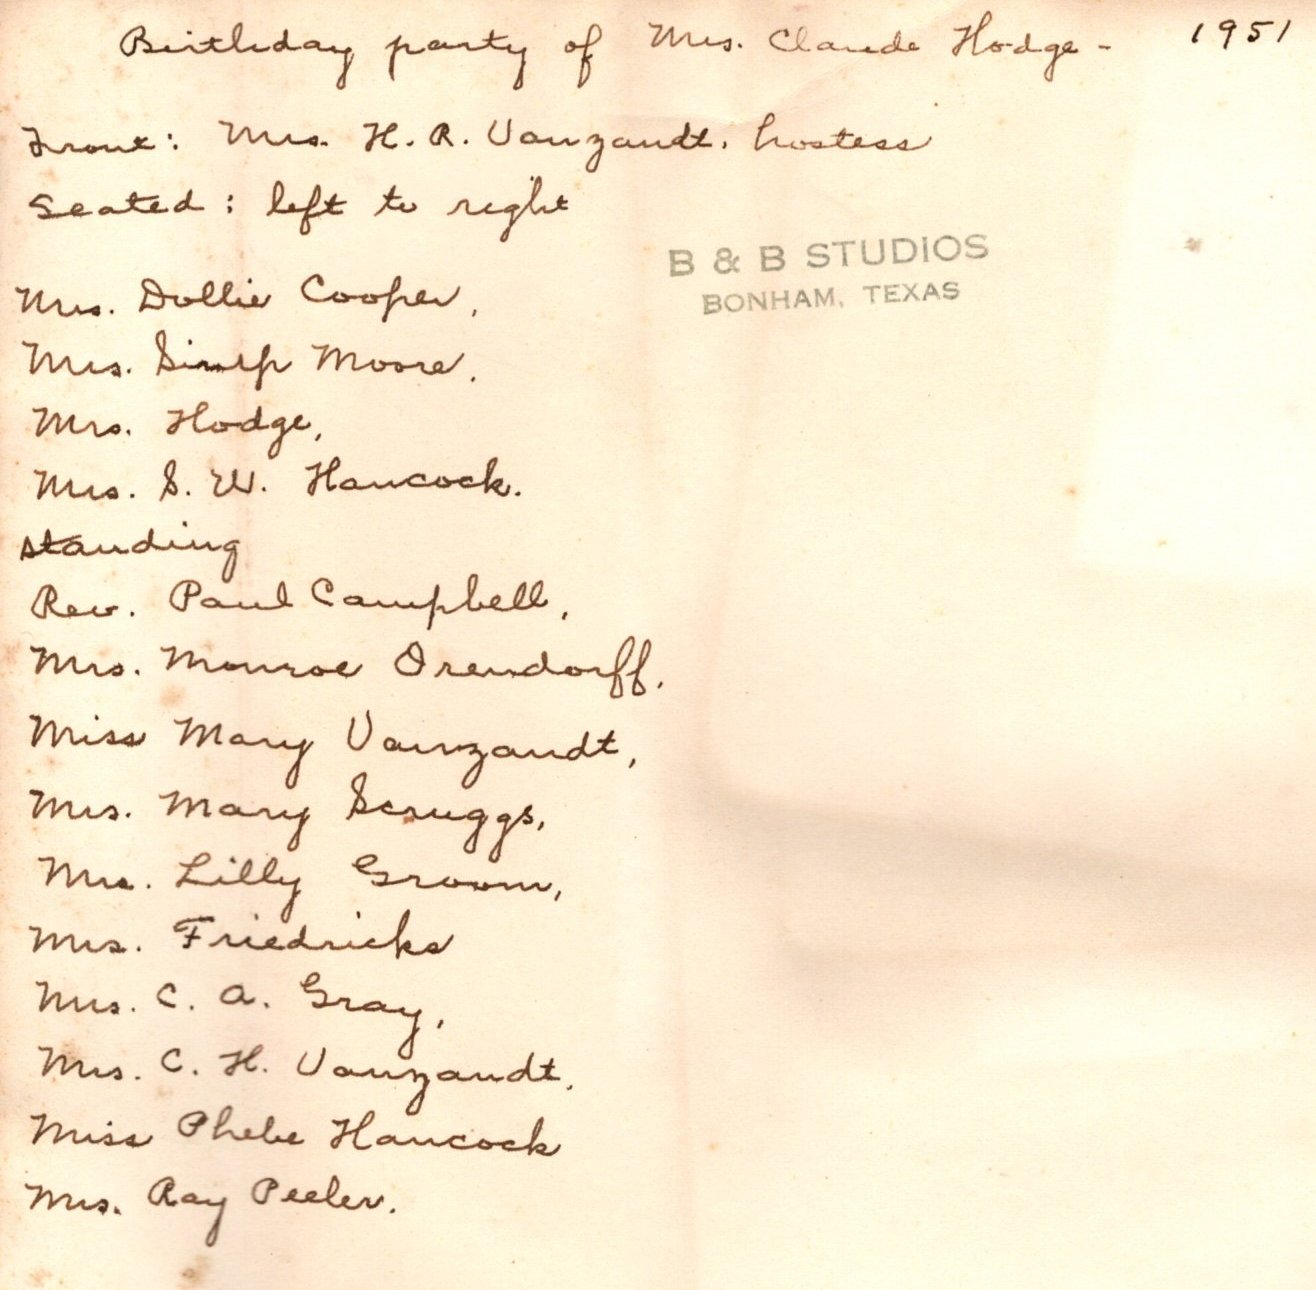 Birthday party of Mrs. Claude Hodge - 1951
Front: Mrs. H. R. Vanzandt. hostess
Seated: left to right
B & B STUDIOS
BONHAM, TEXAS
Mrs. Dollie Cooper,
Mrs. Simp Moore.
Mrs. Hodge,
Mrs. S. W. Hancock.
standing
Rev. Paul Campbell,
Mrs. Monroe Orendorff.
Miss Mary Vanzandt,
Mrs. Mary Scruggs,
Mrs. Lilly Groom,
Mrs. Friedricks
Mrs. C. A. Gray,
Mrs. C. H. Vanzandt.
Miss Phebe Hancock
Mrs. Ray Peeler.